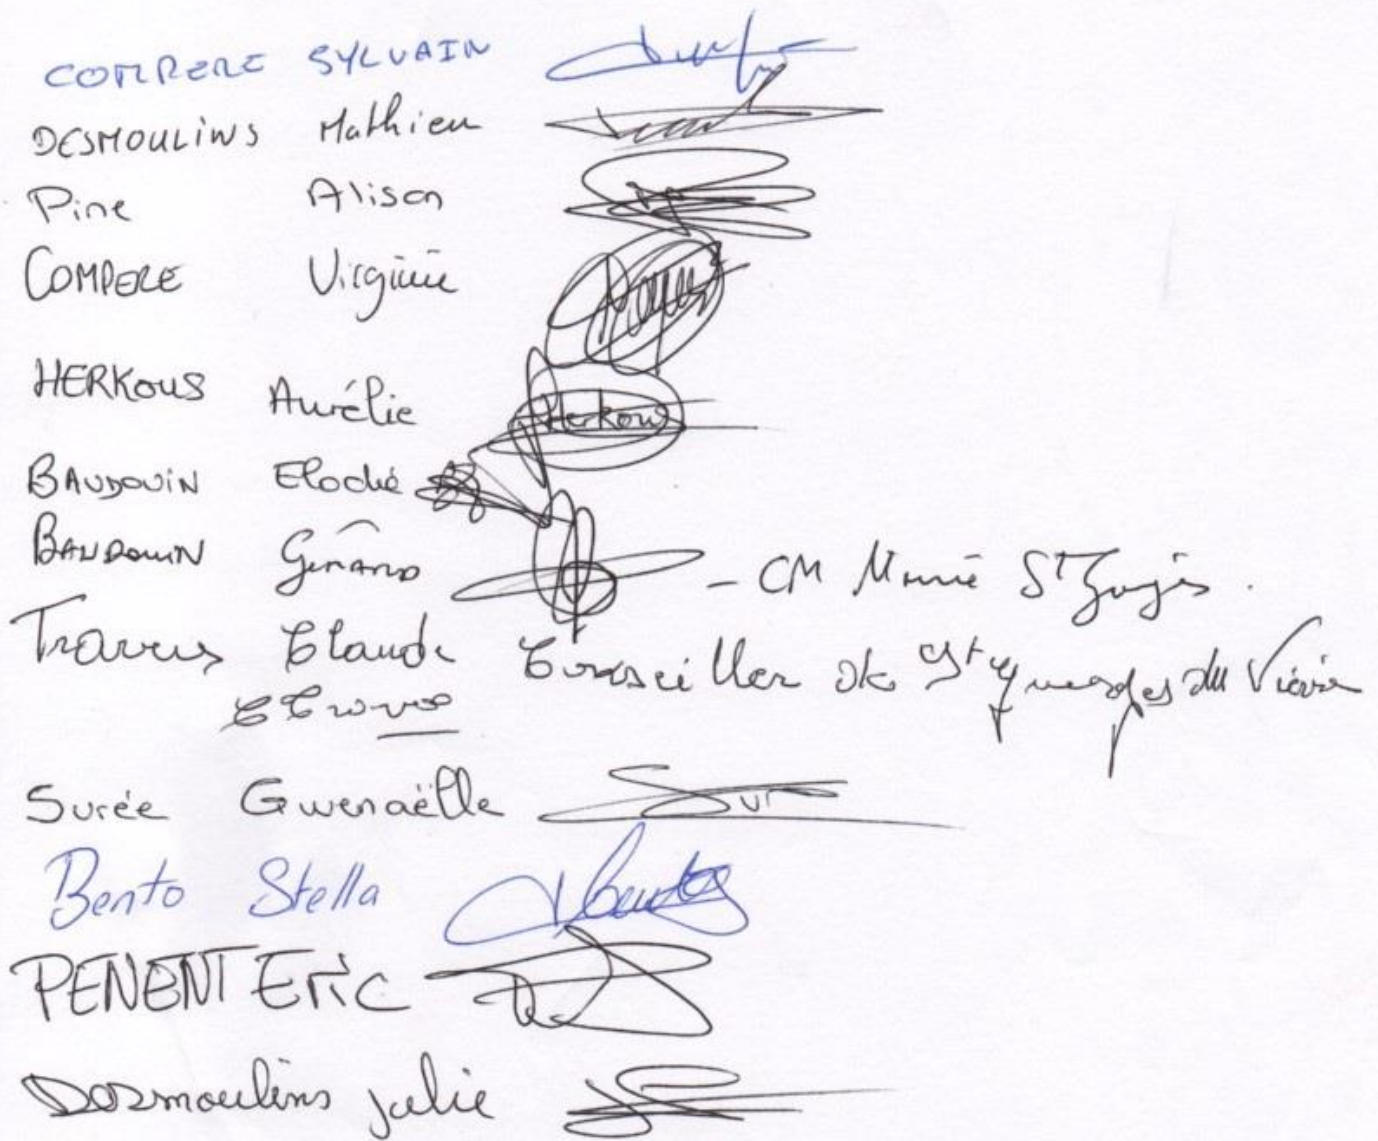 COMPERE SYLVAIN
DESMOULINS Mathieu
Pine Alison
COMPERE Virginie
HERKOUS Aurélie Herkous
BAUDOUIN Elodie
BAUDOUIN Gérard - CM Mairie St Georges.
Travers Claude Conseiller de St Georges du Vièvre
Surée Gwenaëlle Sur
Bento Stella Bento
PENENT Eric
Desmoulins julie